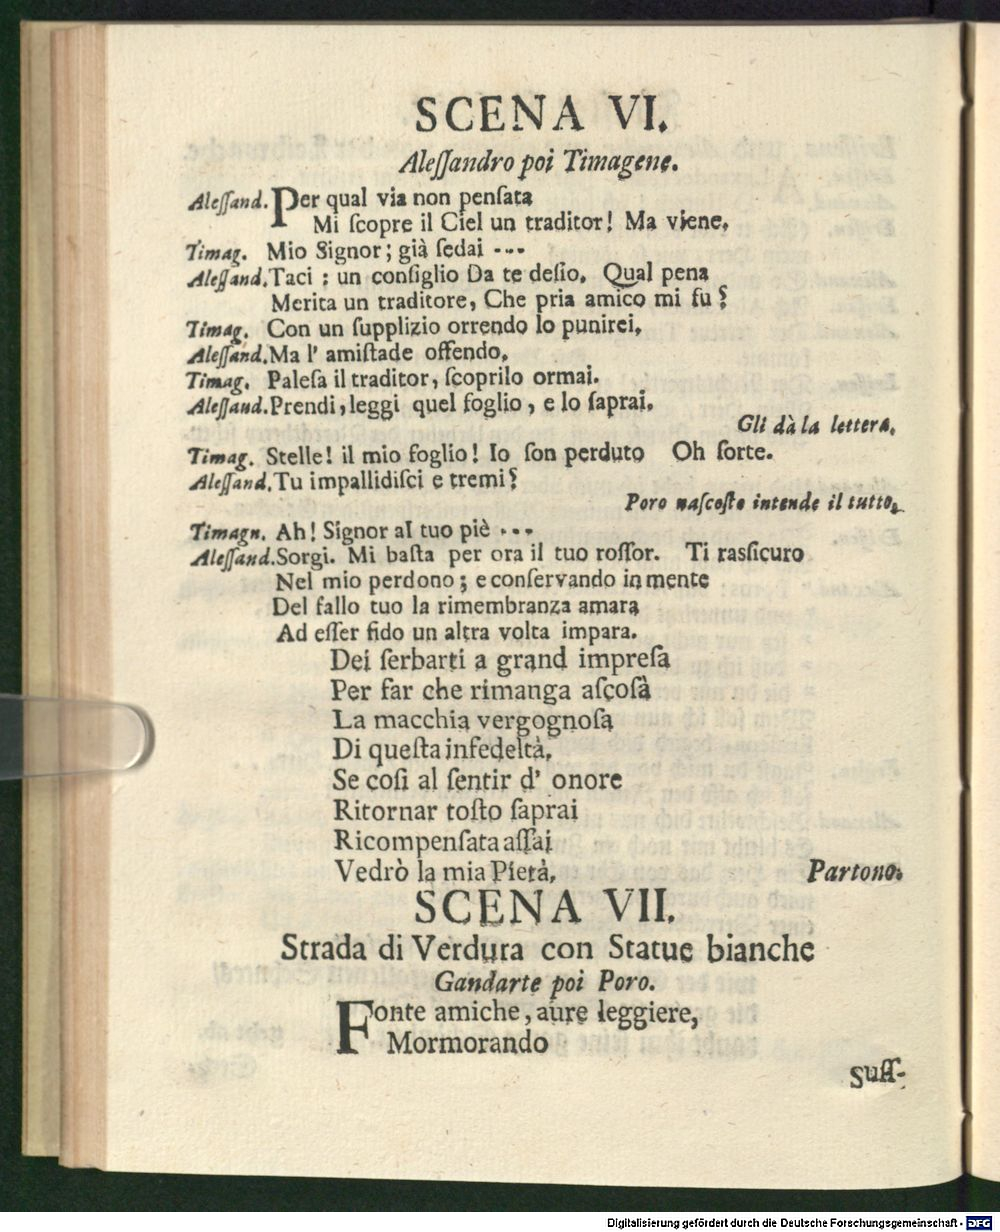 SCENA VI.
Aleſſandro poi Timagene.
Aleſſand. Per qual via non penſata
Mi ſcopre il Ciel un traditor! Ma viene,
Timag. Mio Signor; già ſedai ---
Aleſſand. Taci ; un conſiglio Da te deſio. Qual pena
Merita un traditore, Che pria amico mi fu?
Timag. Con un ſupplizio orrendo lo punirei.
Aleſſand. Ma l' amiſtade offendo.
Timag. Paleſa il traditor, ſcoprilo ormai.
Aleſſaud. Prendi, leggi quel foglio, e lo ſaprai.
Gli dà la lettera.
Timag. Stelle! il mio foglio! Io ſon perduto Oh ſorte.
Aleſſand. Tu impallidiſci e tremi?
Poro naſcoſto intende il tutto.
Timagn. Ah! Signor al tuo piè ---
Aleſſand. Sorgi. Mi baſta per ora il tuo roſſor. Ti rassicuro
Nel mio perdono; e conſervando in mente
Del fallo tuo la rimembranza amara
Ad eſſer fido un altra volta impara.
Dei ſerbarti a grand impreſa
Per far che rimanga aſcoſà
La macchia vergognoſa
Di queſta infedeltà.
Se coſi al ſentir d' onore
Ritornar toſto ſaprai
Ricompenſata aſſai
Vedrò la mia Pietà. Partono.
SCENA VII.
Strada di Verdura con Statue bianche
Gandarte poi Poro.
Fonte amiche, aure leggiere,
Mormorando
Suſſ-
Digitalisierung gefördert durch die Deutsche Forschungsgemeinschaft - DFG